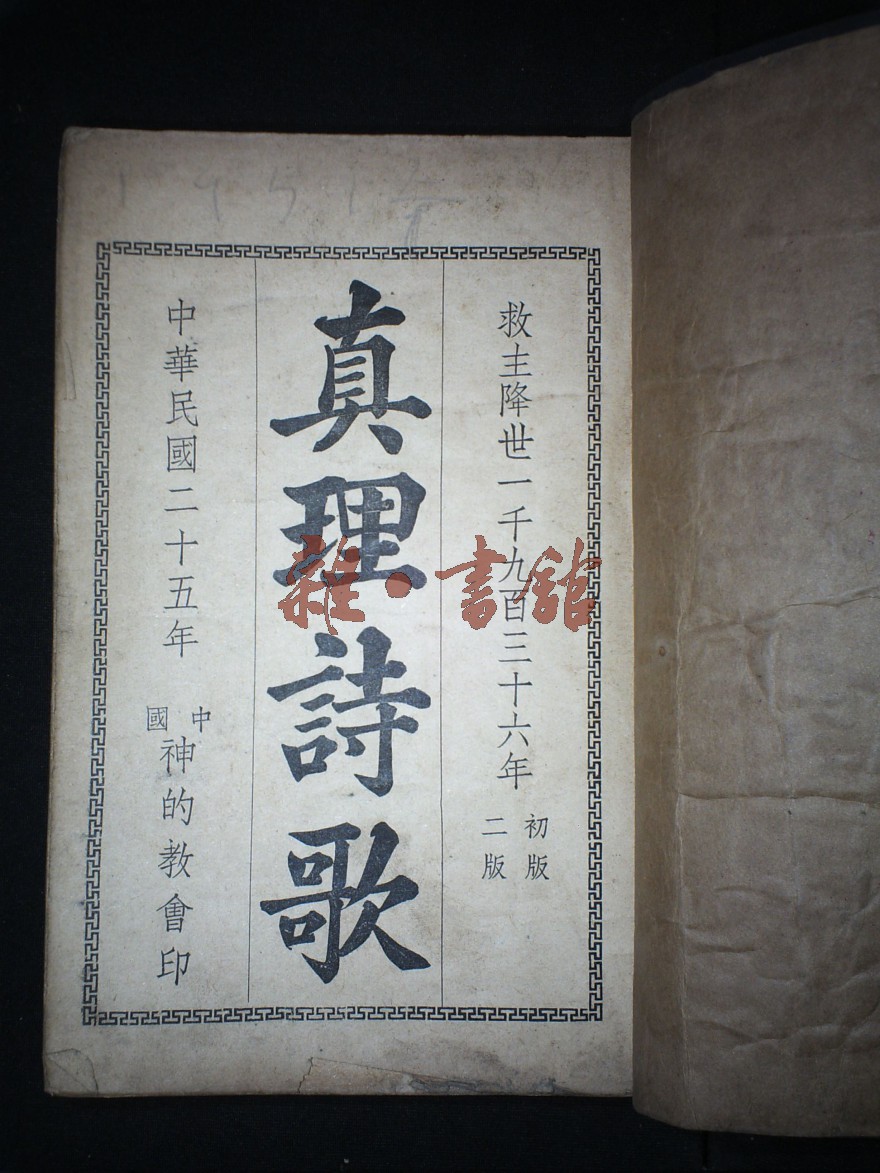 救主降世一千九百三十六年
初版
二版
真理詩歌
中華民國二十五年
中國
神的教會印
雜·書館